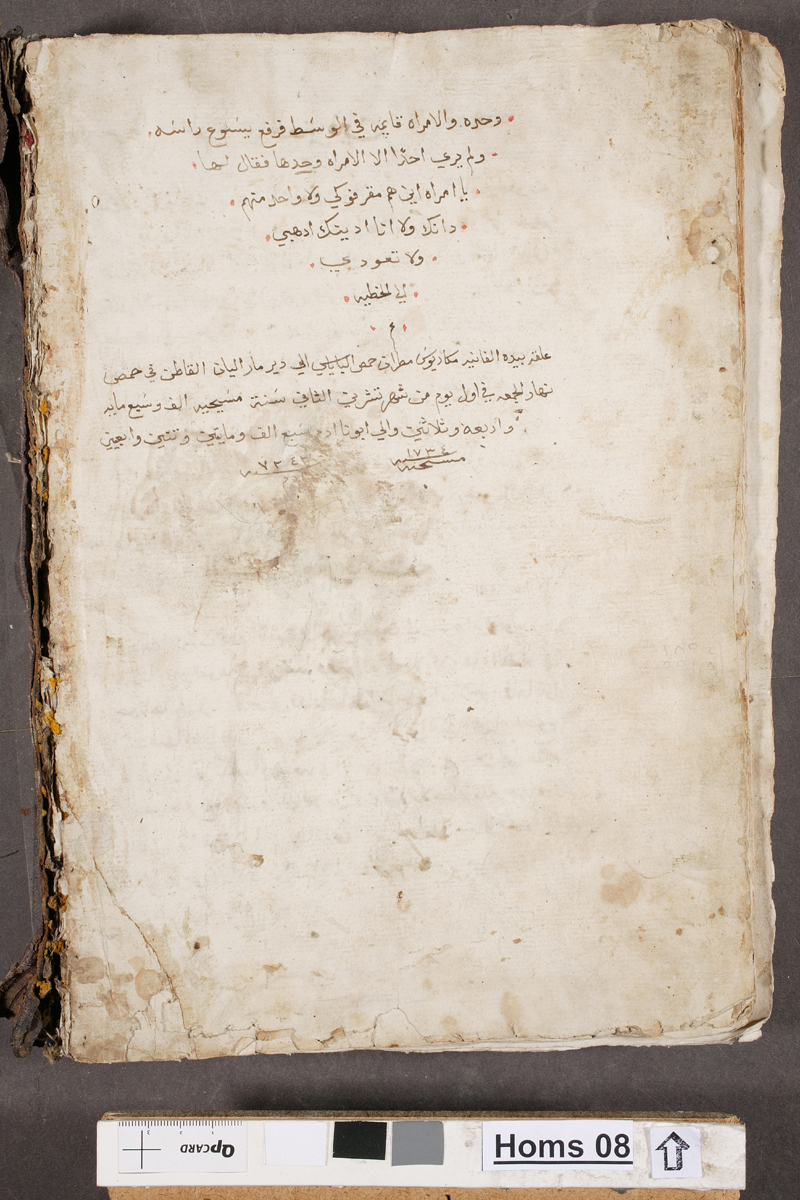 وحده والامراه قايمه في الوسط فرفع يسوع راسه
ولم يري احدًا الا الامراه وحدها فقال لها
يا امراه اين هم مقرفوكي ولا واحد منهم
دانك ولا انا اديتك اذهبي
ولا تعودي
الي الخطيه
علقه بيده الفانيه مكاريوس مطران حمص الي دير مار اليان القاطن في حمص
نهار الجمعه في اول يوم من شهر تشرين الثاني سنة مسيحيه الف وسبع مايه
واربعه وثلاثين والي ابونا ادم سبع الف ومايتين
١٧٣٤ ٧٢٤٣
مسيحيه
QPCARD
Homs 08